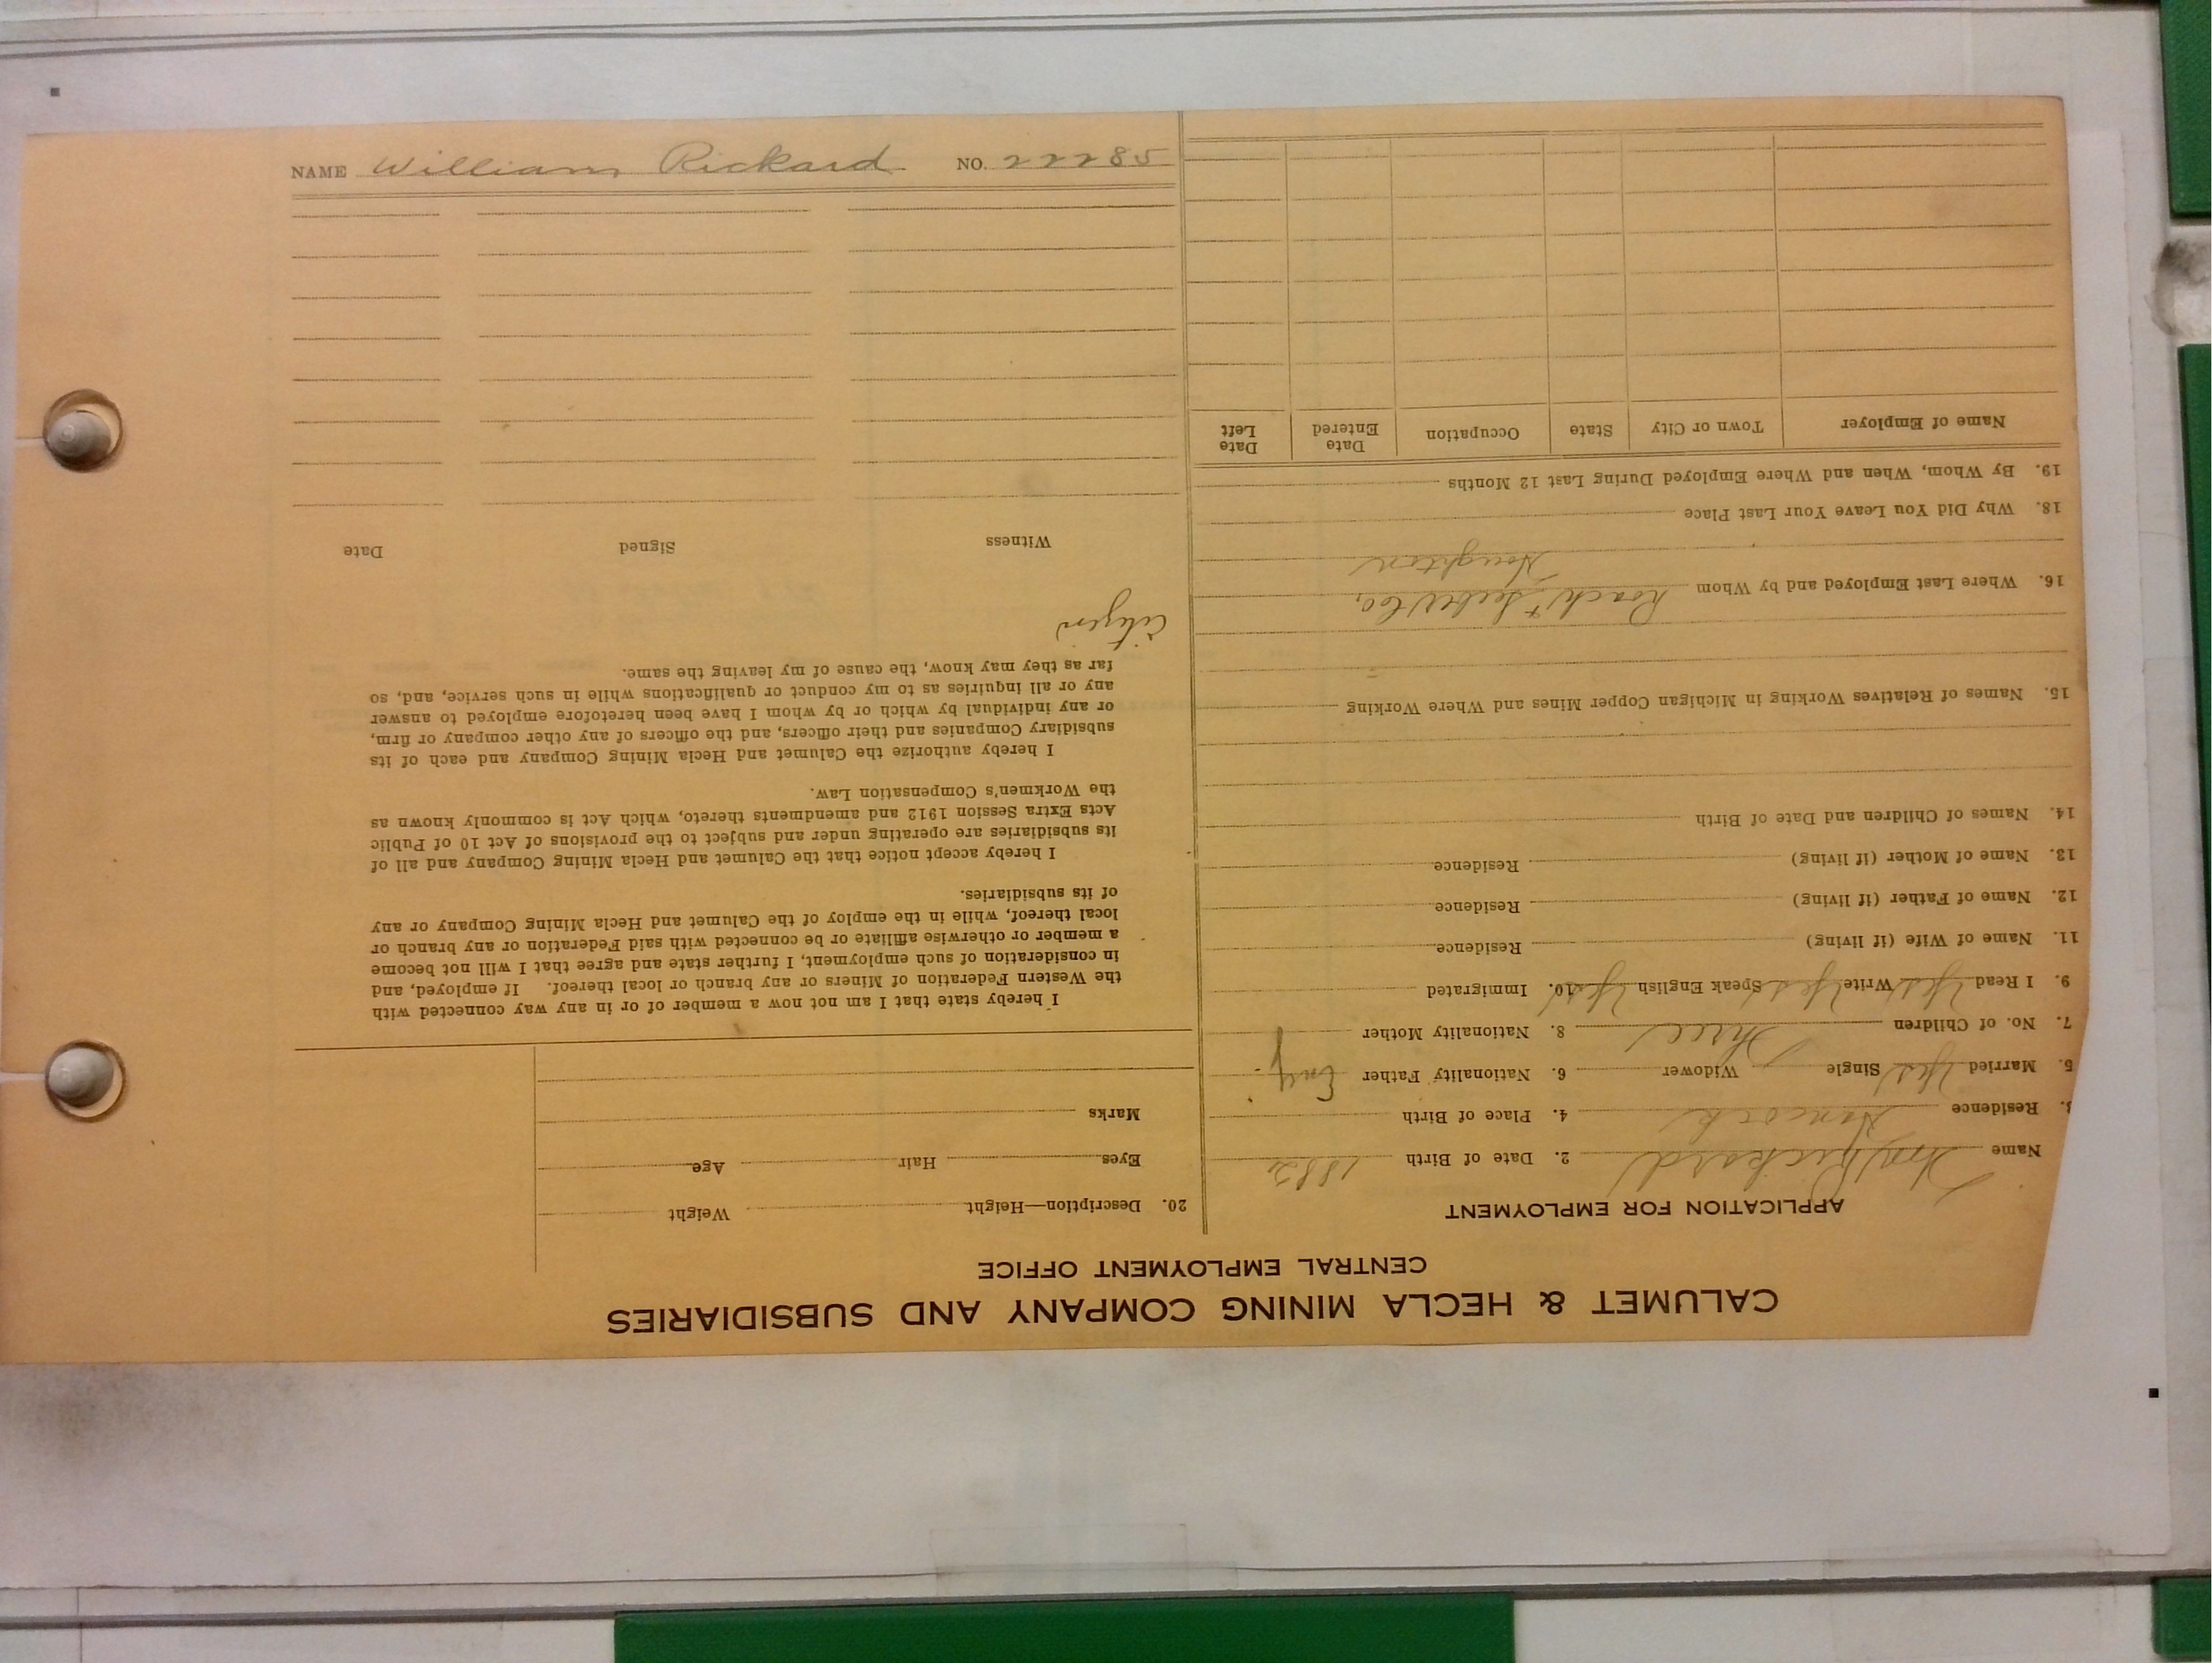 NAME William Rickard NO. 22285
CALUMET & HECLA MINING COMPANY AND SUBSIDIARIES
CENTRAL EMPLOYMENT OFFICE
APPLICATION FOR EMPLOYMENT
Name Wm Rickard 2. Date of Birth 1882
3. Residence Hancock 4. Place of Birth
5. Married Yes Single Widower 6. Nationality Father Eng
7. No. of Children Three 8. Nationality Mother
9. I Read Yes Write Yes Speak English Yes 10. Immigrated
11. Name of Wife (if living) Residence
12. Name of Father (if living) Residence
13. Name of Mother (if living) Residence
14. Names of Children and Date of Birth
15. Names of Relatives Working in Michigan Copper Mines and Where Working
16. Where Last Employed and by Whom Roach & Seeber Co,
Houghton
18. Why Did You Leave Your Last Place
19. By Whom, When and Where Employed During Last 12 Months
Name of Employer Town or City State Occupation Date Entered Date Left
20. Description—Height Weight
Eyes Hair Age
Marks
I hereby state that I am not now a member of or in any way connected with
the Western Federation of Miners or any branch or local thereof. If employed, and
in consideration of such employment, I further state and agree that I will not become
a member or otherwise affiliate or be connected with said Federation or any branch or
local thereof, while in the employ of the Calumet and Hecla Mining Company or any
of its subsidiaries.
I hereby accept notice that the Calumet and Hecla Mining Company and all of
its subsidiaries are operating under and subject to the provisions of Act 10 of Public
Acts Extra Session 1912 and amendments thereto, which Act is commonly known as
the Workmen's Compensation Law.
I hereby authorize the Calumet and Hecla Mining Company and each of its
subsidiary Companies and their officers, and the officers of any other company or firm,
or any individual by which or by whom I have been heretofore employed to answer
any or all inquiries as to my conduct or qualifications while in such service, and, so
far as they may know, the cause of my leaving the same.
Citizen
Witness Signed Date